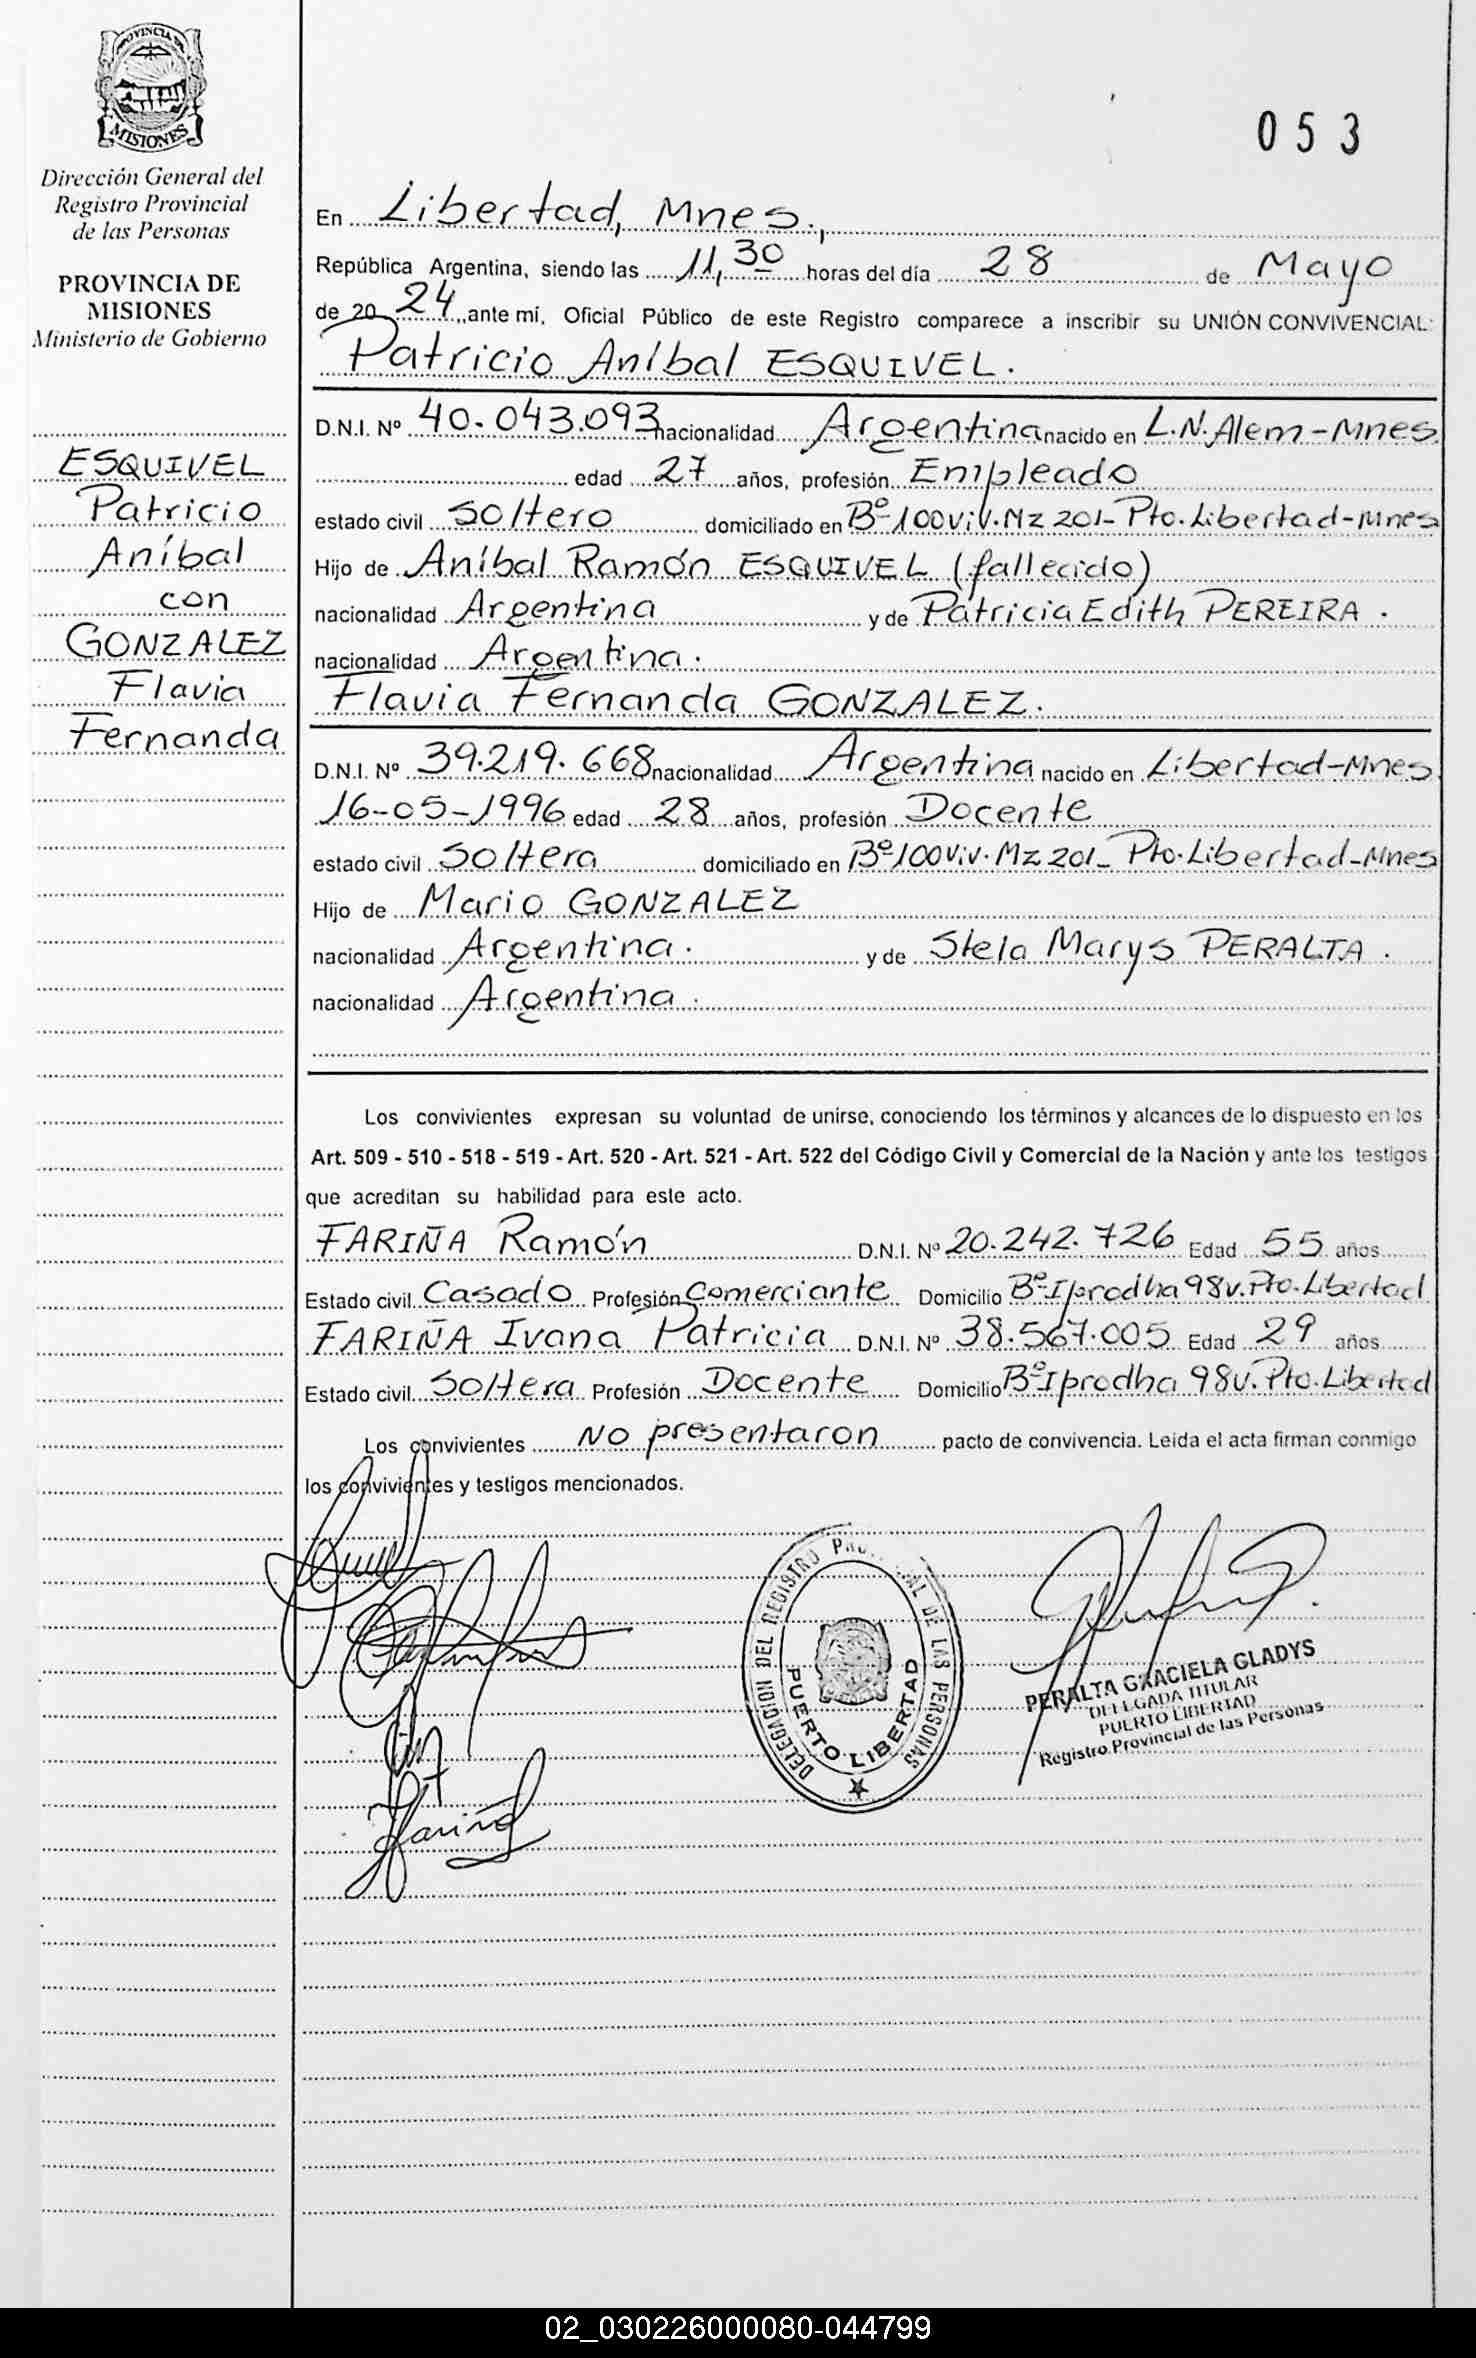 PROVINCIA DE
MISIONES
Dirección General del
Registro Provincial
de las Personas
PROVINCIA DE
MISIONES
Ministerio de Gobierno
ESQUIVEL
Patricio
Aníbal
con
GONZALEZ
Flavia
Fernanda
053
En Libertad, Mnes.,
República Argentina, siendo las 11,30 horas del día 28 de Mayo
de 20 24, ante mí, Oficial Público de este Registro comparece a inscribir su UNIÓN CONVIVENCIAL:
Patricio Aníbal ESQUIVEL.
D.N.I. Nº 40.043.093 nacionalidad Argentina nacido en L.N.Alem-Mnes
edad 27 años, profesión Empleado
estado civil Soltero domiciliado en Bº 100 viv. Mz 201- Pto. Libertad-Mnes
Hijo de Aníbal Ramón ESQUIVEL (fallecido)
nacionalidad Argentina y de Patricia Edith PEREIRA.
nacionalidad Argentina.
Flavia Fernanda GONZALEZ.
D.N.I. Nº 39.219.668 nacionalidad Argentina nacido en Libertad-Mnes
16-05-1996 edad 28 años, profesión Docente
estado civil Soltera domiciliado en Bº 100 Viv. Mz 201- Pto. Libertad-Mnes
Hijo de Mario GONZALEZ
nacionalidad Argentina. y de Stela Marys PERALTA.
nacionalidad Argentina.
Los convivientes expresan su voluntad de unirse, conociendo los términos y alcances de lo dispuesto en los
Art. 509 - 510 - 518 - 519 - Art. 520 - Art. 521 - Art. 522 del Código Civil y Comercial de la Nación y ante los testigos
que acreditan su habilidad para este acto.
FARIÑA Ramón D.N.I. Nº 20.242.726 Edad 55 años
Estado civil Casado Profesión Comerciante Domicilio Bº Iprodha 98v. Pto. Libertad
FARIÑA Ivana Patricia D.N.I. Nº 38.567.005 Edad 29 años
Estado civil Soltera Profesión Docente Domicilio Bº Iprodha 98v. Pto. Libertad
Los convivientes No presentaron pacto de convivencia. Leída el acta firman conmigo
los convivientes y testigos mencionados.
DELEGACION DEL REGISTRO PROVINCIAL DE LAS PERSONAS
PUERTO LIBERTAD
Fariña
PERALTA GRACIELA GLADYS
DELEGADA TITULAR
PUERTO LIBERTAD
Registro Provincial de las Personas
02_030226000080-044799